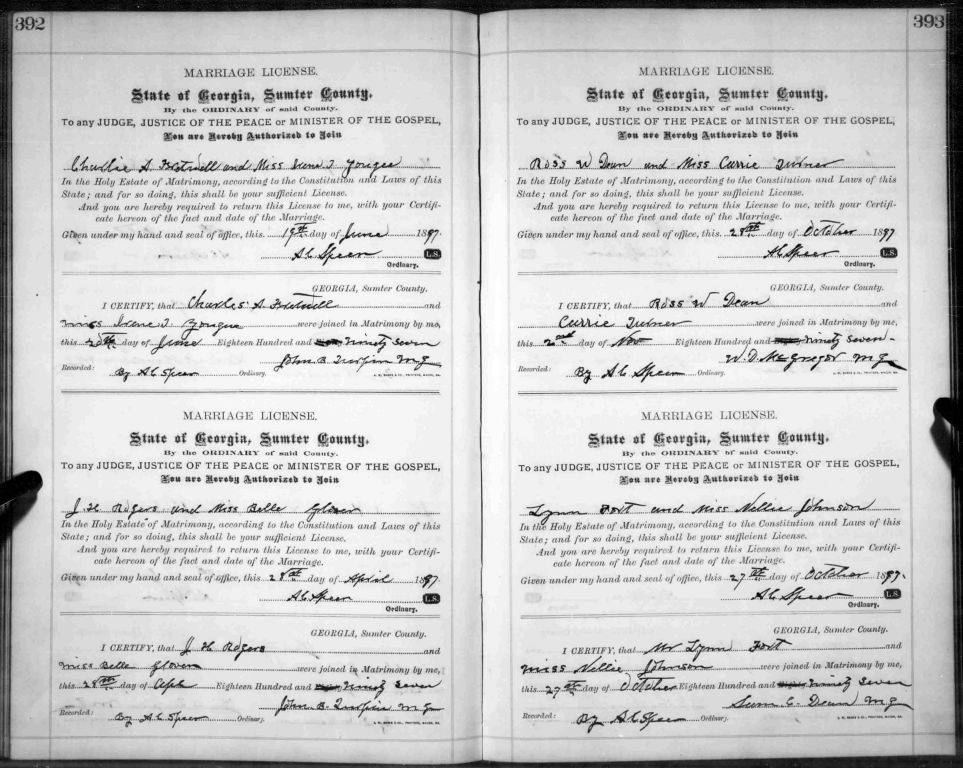 392
MARRIAGE LICENSE.
State of Georgia, Sumter County.
By the ORDINARY of said County.
To any JUDGE, JUSTICE OF THE PEACE or MINISTER OF THE GOSPEL,
You are Hereby Authorized to Join
Charlie A. Fretwell and Miss Irene I. Youngue
In the Holy Estate of Matrimony, according to the Constitution and Laws of this
State; and for so doing, this shall be your sufficient License.
And you are hereby required to return this License to me, with your Certifi-
cate hereon of the fact and date of the Marriage.
Given under my hand and seal of office, this 19th day of June 1897.
A C Speer L.S.
Ordinary.
GEORGIA, Sumter County.
I CERTIFY, that Charles A. Fretwell and
Miss Irene I. were joined in Matrimony by me,
this 20th day of June Eighteen Hundred and Ninety Seven
John B. Turpin M G
Recorded: By A C Speer Ordinary.
MARRIAGE LICENSE.
State of Georgia, Sumter County.
By the ORDINARY of said County.
To any JUDGE, JUSTICE OF THE PEACE or MINISTER OF THE GOSPEL,
You are Hereby Authorized to Join
J. H. Rogers and Miss Belle Glover
In the Holy Estate of Matrimony, according to the Constitution and Laws of this
State; and for so doing, this shall be your sufficient License.
And you are hereby required to return this License to me, with your Certifi-
cate hereon of the fact and date of the Marriage.
Given under my hand and seal of office, this 28th day of April 1897.
A C Speer L.S.
Ordinary.
GEORGIA, Sumter County.
I CERTIFY, that J. H. Rogers and
Miss Belle Glover were joined in Matrimony by me,
this 28th day of Apl Eighteen Hundred and Ninety Seven
John B. Turpin M G
Recorded: By A C Speer Ordinary.
393
MARRIAGE LICENSE.
State of Georgia, Sumter County.
By the ORDINARY of said County.
To any JUDGE, JUSTICE OF THE PEACE or MINISTER OF THE GOSPEL,
You are Hereby Authorized to Join
Ross W Dean and Miss Carrie Turner
In the Holy Estate of Matrimony, according to the Constitution and Laws of this
State; and for so doing, this shall be your sufficient License.
And you are hereby required to return this License to me, with your Certifi-
cate hereon of the fact and date of the Marriage.
Given under my hand and seal of office, this 28th day of October 1897
A C Speer L.S.
Ordinary.
GEORGIA, Sumter County.
I CERTIFY, that Ross W Dean and
Carrie Turner were joined in Matrimony by me,
this 2nd day of Nov Eighteen Hundred and Ninety Seven
W. D. McGregor M G
Recorded: By A C Speer Ordinary.
MARRIAGE LICENSE.
State of Georgia, Sumter County.
By the ORDINARY of said County.
To any JUDGE, JUSTICE OF THE PEACE or MINISTER OF THE GOSPEL,
You are Hereby Authorized to Join
Lynn Fort and Miss Nellie Johnson
In the Holy Estate of Matrimony, according to the Constitution and Laws of this
State; and for so doing, this shall be your sufficient License.
And you are hereby required to return this License to me, with your Certifi-
cate hereon of the fact and date of the Marriage.
Given under my hand and seal of office, this 27th day of October 1897.
A C Speer L.S.
Ordinary.
GEORGIA, Sumter County.
I CERTIFY, that Mr Lynn Fort and
Miss Nellie Johnson were joined in Matrimony by me,
this 27th day of October Eighteen Hundred and Ninety Seven
Sam C. Dean M G
Recorded: By A C Speer Ordinary.